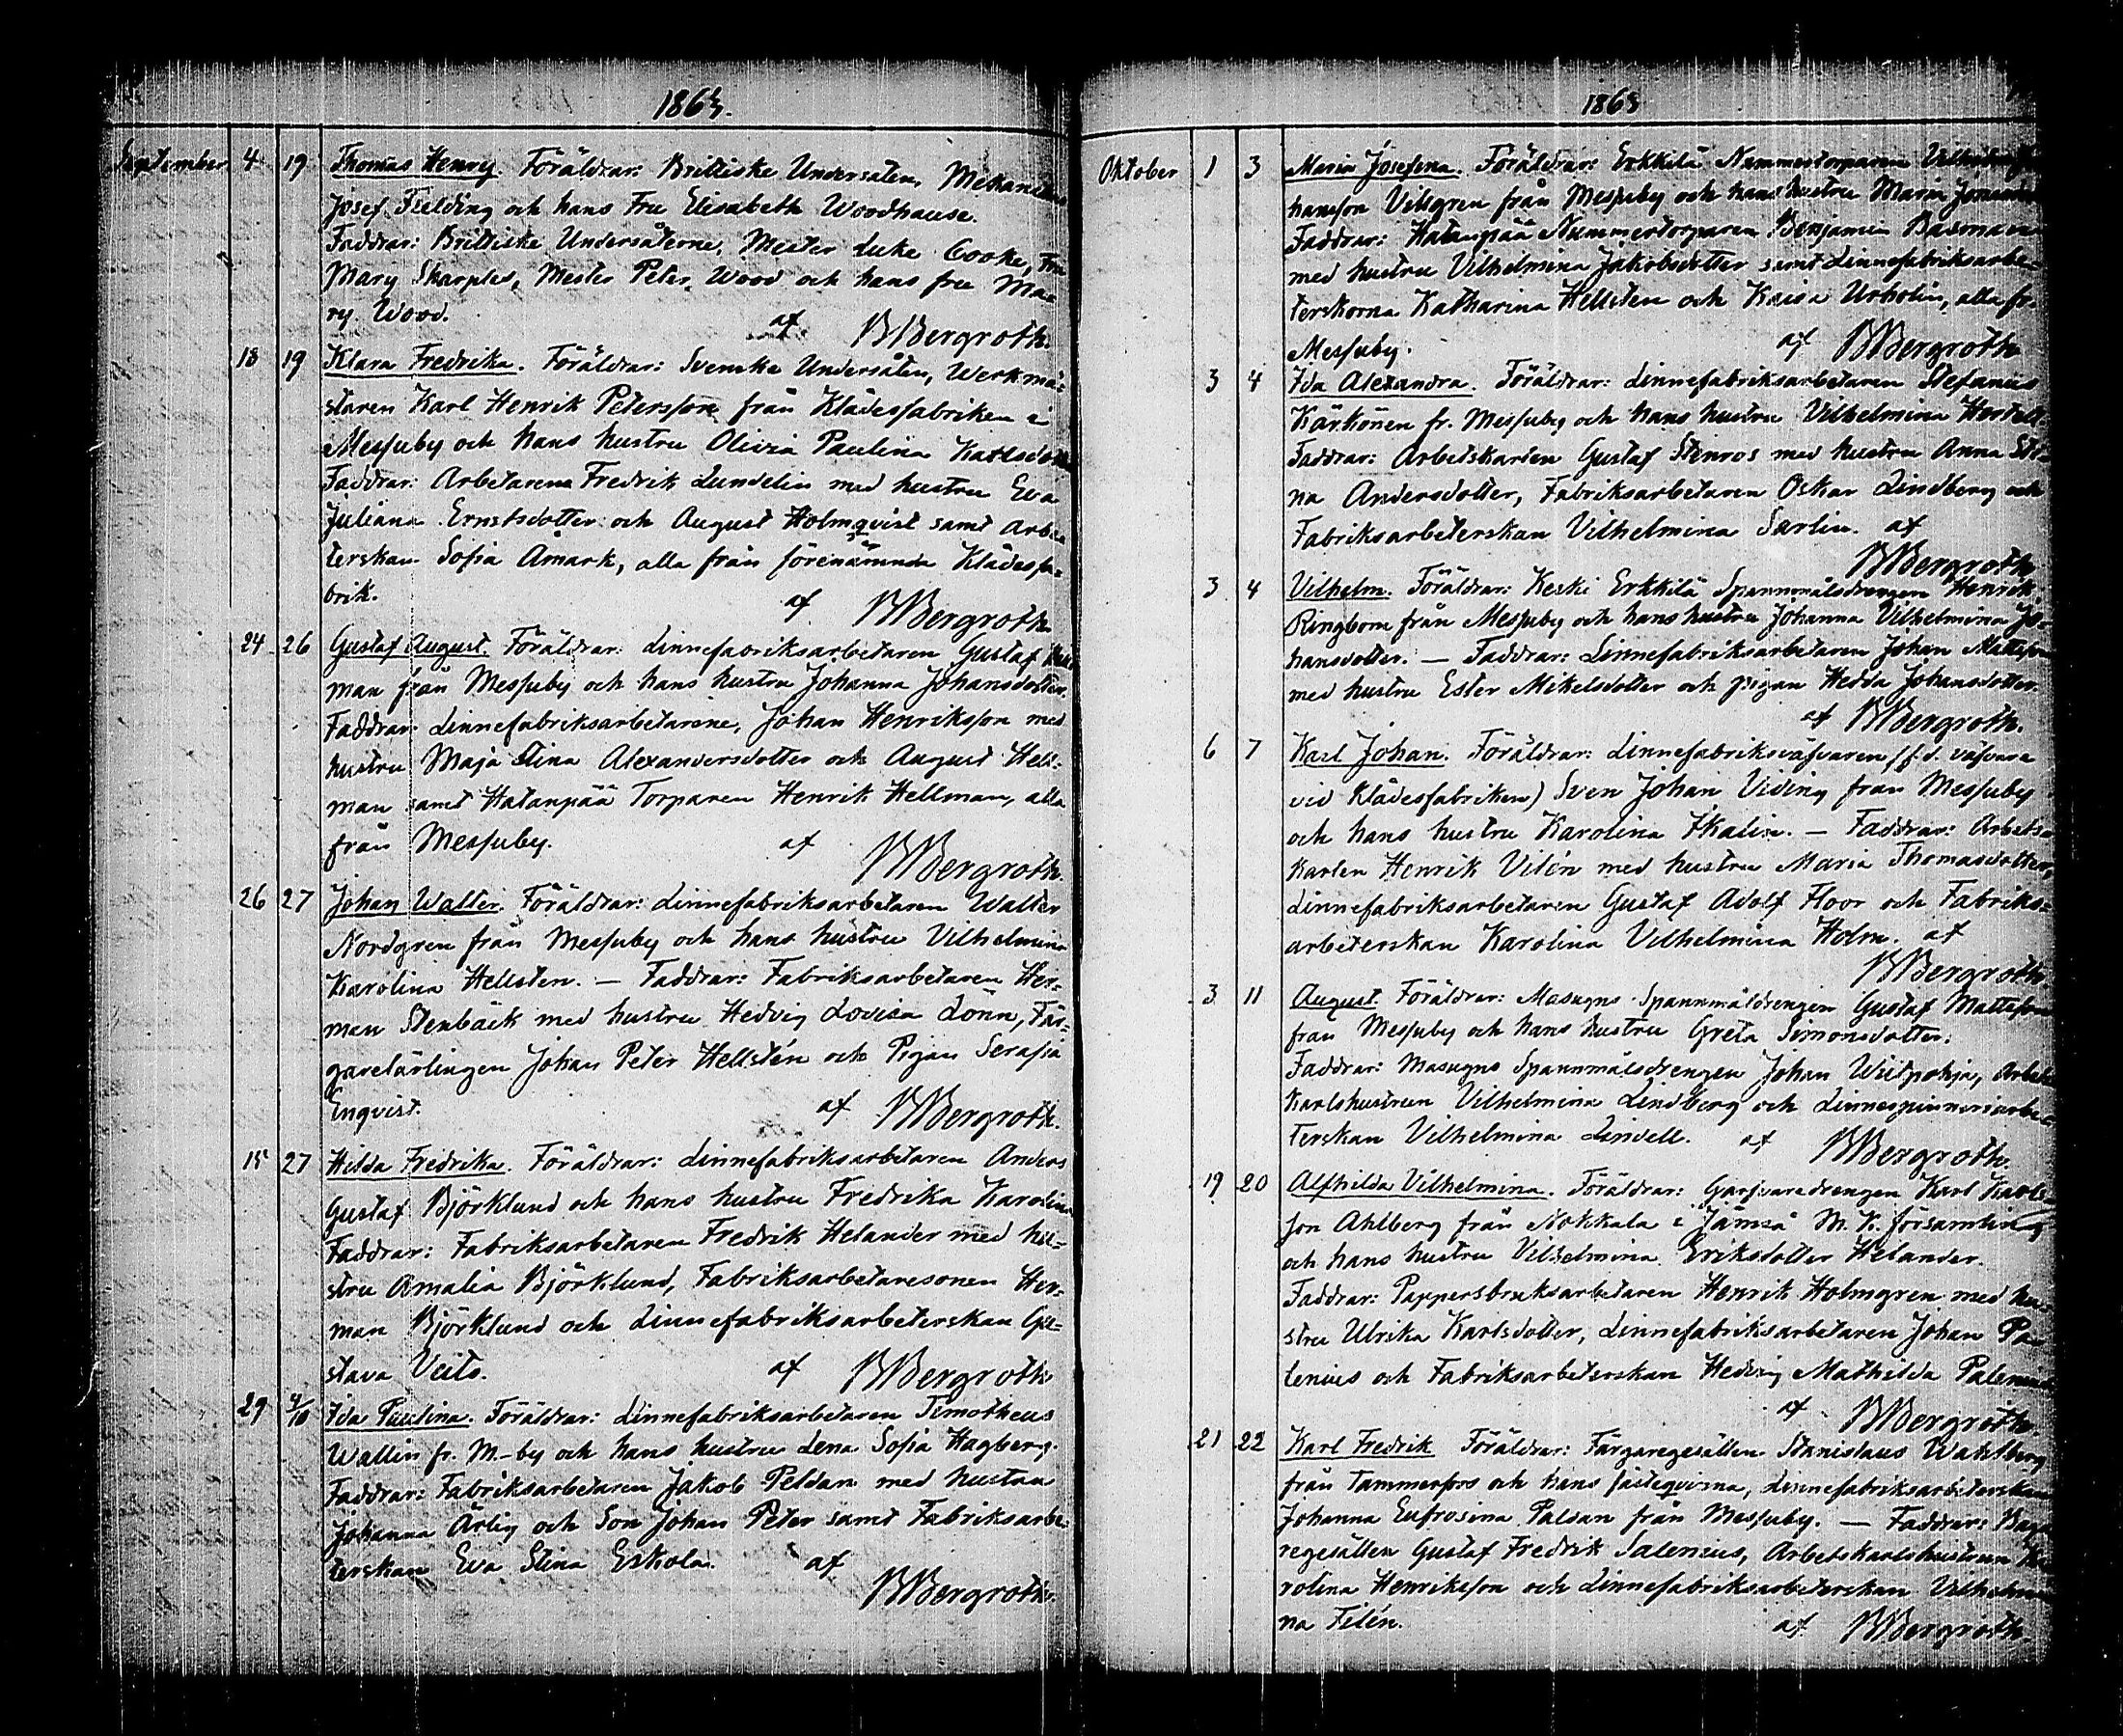 1863.
September 4 19 Thomas Henry. Föräldrar: Brittiske Undersåten, Mekanikus
Josef Fielding och hans Fru Elisabeth Woodhause.
Faddrar: Brittiske Undersåterne, Mester Luke Cooke, Fru
Mary Sharples, Mester Peter Wood och hans fru Ma=
ry Wood. af BBergroth.
18 19 Klara Fredrika. Föräldrar: Svenske Undersåten, Werkmä=
staren Karl Henrik Petersson från Klädesfabriken i
Messuby och hans hustru Olivia Paulina Karlsdotter
Faddrar: Arbetarena Fredrik Lundelin med hustru Eva
Juliana Ernstsdotter och August Holmqvist samt arbe
terskan Sofia Åmark, alla från förenämnda Klädesfa=
brik. af BBergroth.
24 26 Gustaf August. Föräldrar: Linnefabriksarbetaren Gustaf
man från Messuby och hans hustru Johanna Johansdotter.
Faddrar: Linnefabriksarbetarene, Johan Henriksson med
hustru Maja Stina Alexandersdotter och August Hell=
man samt Hatanpää Torparen Henrik Hellman, alla
från Messuby. af BBergroth.
26 27 Johan Walter. Föräldrar: Linnefabriksarbetaren Walter
Nordgren från Messuby och hans hustru Vilhelmina
Karolina Hellsten. — Faddrar: Fabriksarbetaren Her=
man Stenbäck med hustru Hedvig Lovisa Lönn, Fär=
garelärlingen Johan Peter Hellstén och Pigan Serafia
Enqvist. af BBergroth.
15 27 Hilda Fredrika. Föräldrar: Linnefabriksarbetaren Anders
Gustaf Björklund och hans hustru Fredrika Karolina
Faddrar: Fabriksarbetaren Fredrik Helander med hu=
stru Amalia Björklund, Fabriksarbetaresonen Her=
man Björklund och Linnefabriksarbeterskan Gu=
stava Veits. af BBergroth
29 4/10 Ida Paulina. Föräldrar: Linnefabriksarbetaren Timotheus
Wallin fr. M.-by och hans hustru Lena Sofia Hagberg.
Faddrar: Fabriksarbetaren Jakob Peldan med hustru
Johanna Ärlig och Son Johan Peter samt Fabriksarbe
terskan Eva Stina Eskola. af
BBergroth.
1863
Oktober 1 3 Maria Josefina. Föräldrar: Erkkilä Nummertorparen
hansson Vilsgren från Messuby och hans hustru Maria
Faddrar: Hatanpää Nummertorparen Benjamin
med hustru Vilhelmina Jakobsdotter samt Linnefabriksarbe=
terskorna Katharina Hellsten och Kaisa Urholin, alla fr.
Messuby. af BBergroth
3 4 Ida Alexandra. Föräldrar: Linnefabriksarbetaren Stefanus
Kärkönen fr. Messuby och hans hustru Vilhelmina
Faddrar: Arbetskarlen Gustaf Stenros med hustru Anna Sti=
na Andersdotter, Fabriksarbetaren Oskar Lindberg och
Fabriksarbeterskan Vilhelmina Sarlin. af
BBergroth
3 4 Vilhelm. Föräldrar: Keski Erkkilä Spannmålsdrengen Henrik
Ringbom från Messuby och hans hustru Johanna Vilhelmina Jo=
hansdotter. — Faddrar: Linnefabriksarbetaren Johan Mattsson
med hustru Ester Mikelsdotter och pigan Hedda Johansdotter.
af BBergroth.
6 7 Karl Johan. Föräldrar: Linnefabriksväfvaren (f.d. väfvare
vid Klädesfabriken) Sven Johan Viding från Messuby
och hans hustru Karolina Hkalin. — Faddrar: Arbets=
karlen Henrik Vilén med hustru Maria Thomasdotter,
Linnefabriksarbetaren Gustaf Adolf Floor och Fabriks=
arbeterskan Karolina Vilhelmina Holm. af
BBergroth.
3 11 August. Föräldrar: Masugns Spannmåldrengen Gustaf Mattsson
från Messuby och hans hustru Greta Simonsdotter.
Faddrar: Masugns Spannmålsdrengen Johan Wuitpohja, Arbets
karlshustrun Vilhelmina Lindberg och Linnespinneriarbe=
terskan Vilhelmina Lindell. af BBergroth.
19 20 Alfhilda Vilhelmina. Föräldrar: Garfvaredrengen Karl Karls=
son Ahlberg från Nokkala i Jämsä M. K. församling
och hans hustru Vilhelmina Eriksdotter Helander.
Faddrar: Pappersbruksarbetaren Henrik Holmgren med hu=
stru Ulrika Karlsdotter, Linnefabriksarbetaren Johan Pa=
lenius och Fabriksarbeterskan Hedvig Mathilda Palenius
af BBergroth.
21 22 Karl Fredrik Föräldrar: Färgaregesällen Stanislaus Wahlberg
från Tammerfors och hans fästeqvinna, Linnefabriksarbeterskan
Johanna Eufrosina Paldan från Messuby. — Faddrar: Baga
regesällen Gustaf Fredrik Salenius, Arbetskarlshustrun Ka
rolina Henriksson och Linnefabriksarbeterskan Vilhelmi
na Filén. af BBergroth.